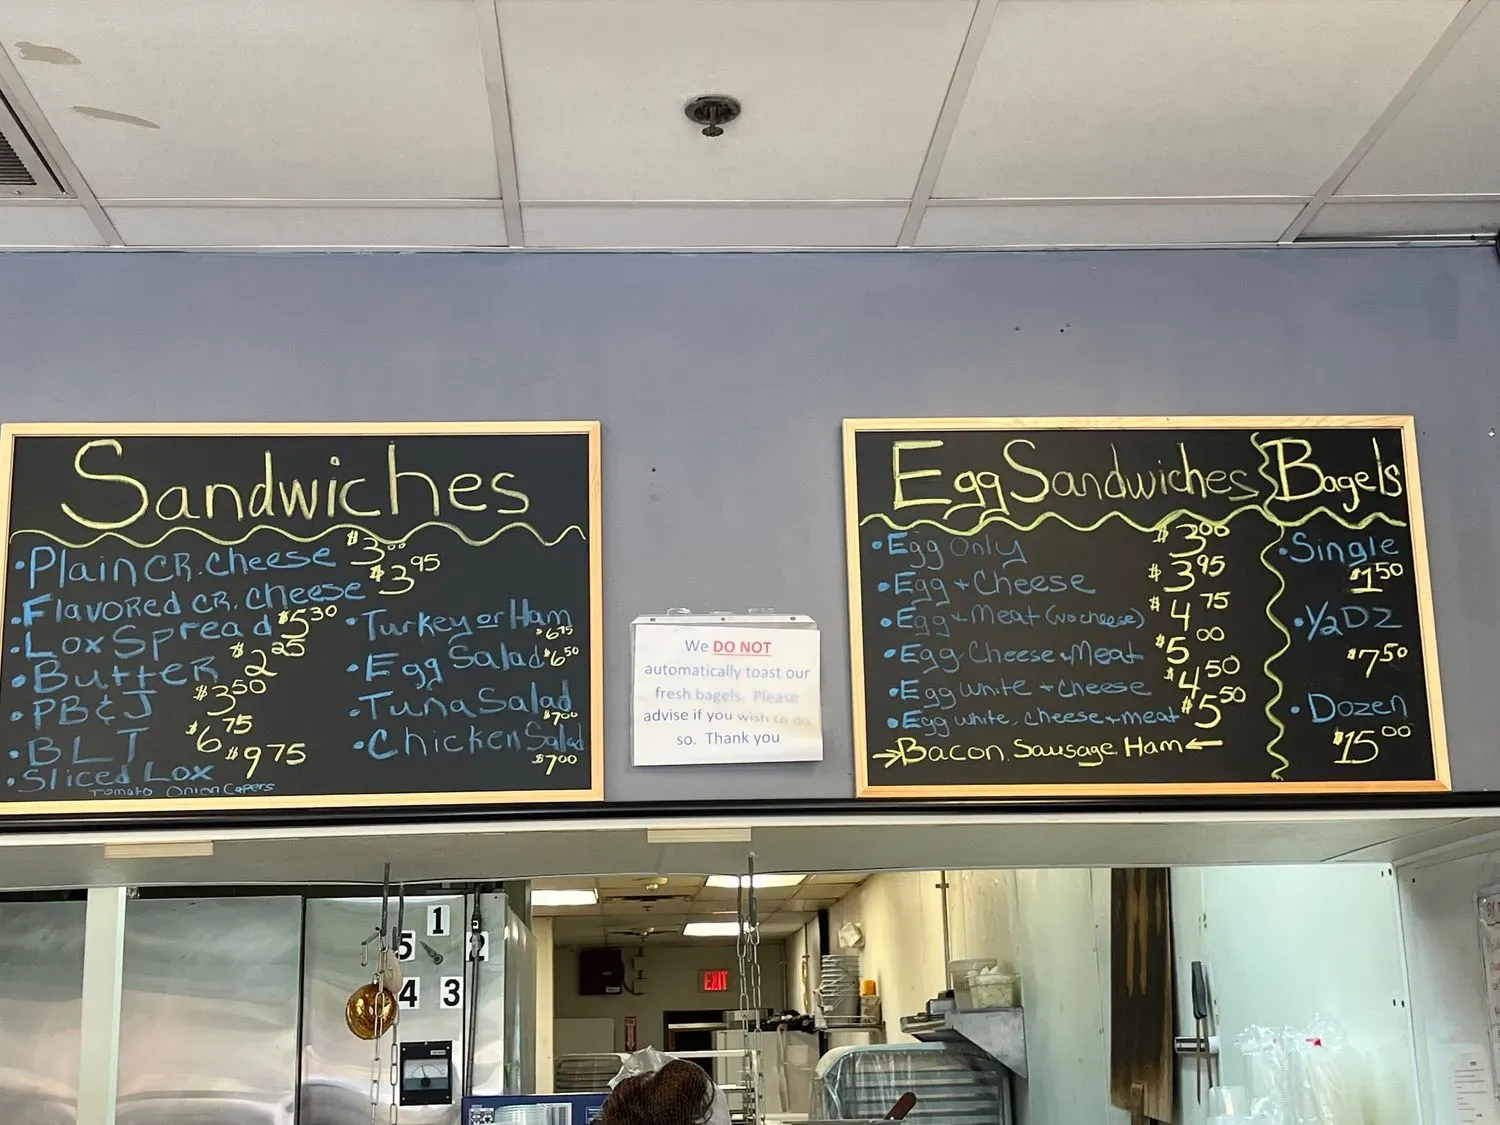 Sandwiches
• Plain CR. Cheese $3.00
• Flavored CR. Cheese $3.95
• Lox Spread $5.30
• Butter $2.25
• PB & J $3.50
• BLT $6.75
• Sliced Lox $9.75
Tomato Onion Capers
• Turkey or Ham
$6.75
• Egg Salad $6.50
• Tuna Salad
$7.00
• Chicken Salad
$7.00
We DO NOT
automatically toast our
fresh bagels. Please
advise if you wish to do
so. Thank you
Egg Sandwiches
• Egg only $3.00
• Egg + Cheese $3.95
• Egg + Meat (no cheese) $4.75
• Egg Cheese + Meat $5.00
• Egg white + cheese $4.50
• Egg white, cheese + meat $5.50
→ Bacon, Sausage, Ham ←
Bagels
• Single
$1.50
• 1/2 DZ
$7.50
• Dozen
$15.00
1
5
2
4 3
EXIT